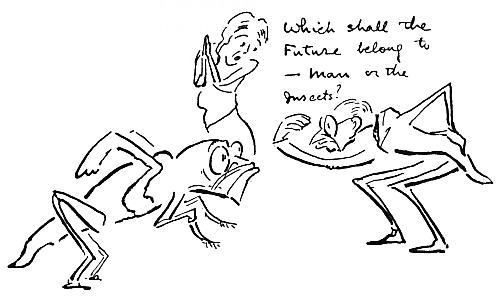 Which shall the
Future belong to
— Man or the
Insects?